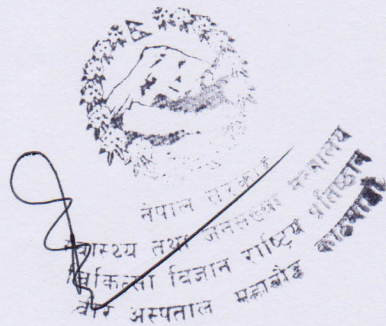 नेपाल सरकार
स्वास्थ्य तथा जनसंख्या मन्त्रालय
चिकित्सा विज्ञान राष्ट्रिय प्रतिष्ठान
वीर अस्पताल महाबौद्ध काठमाडौं